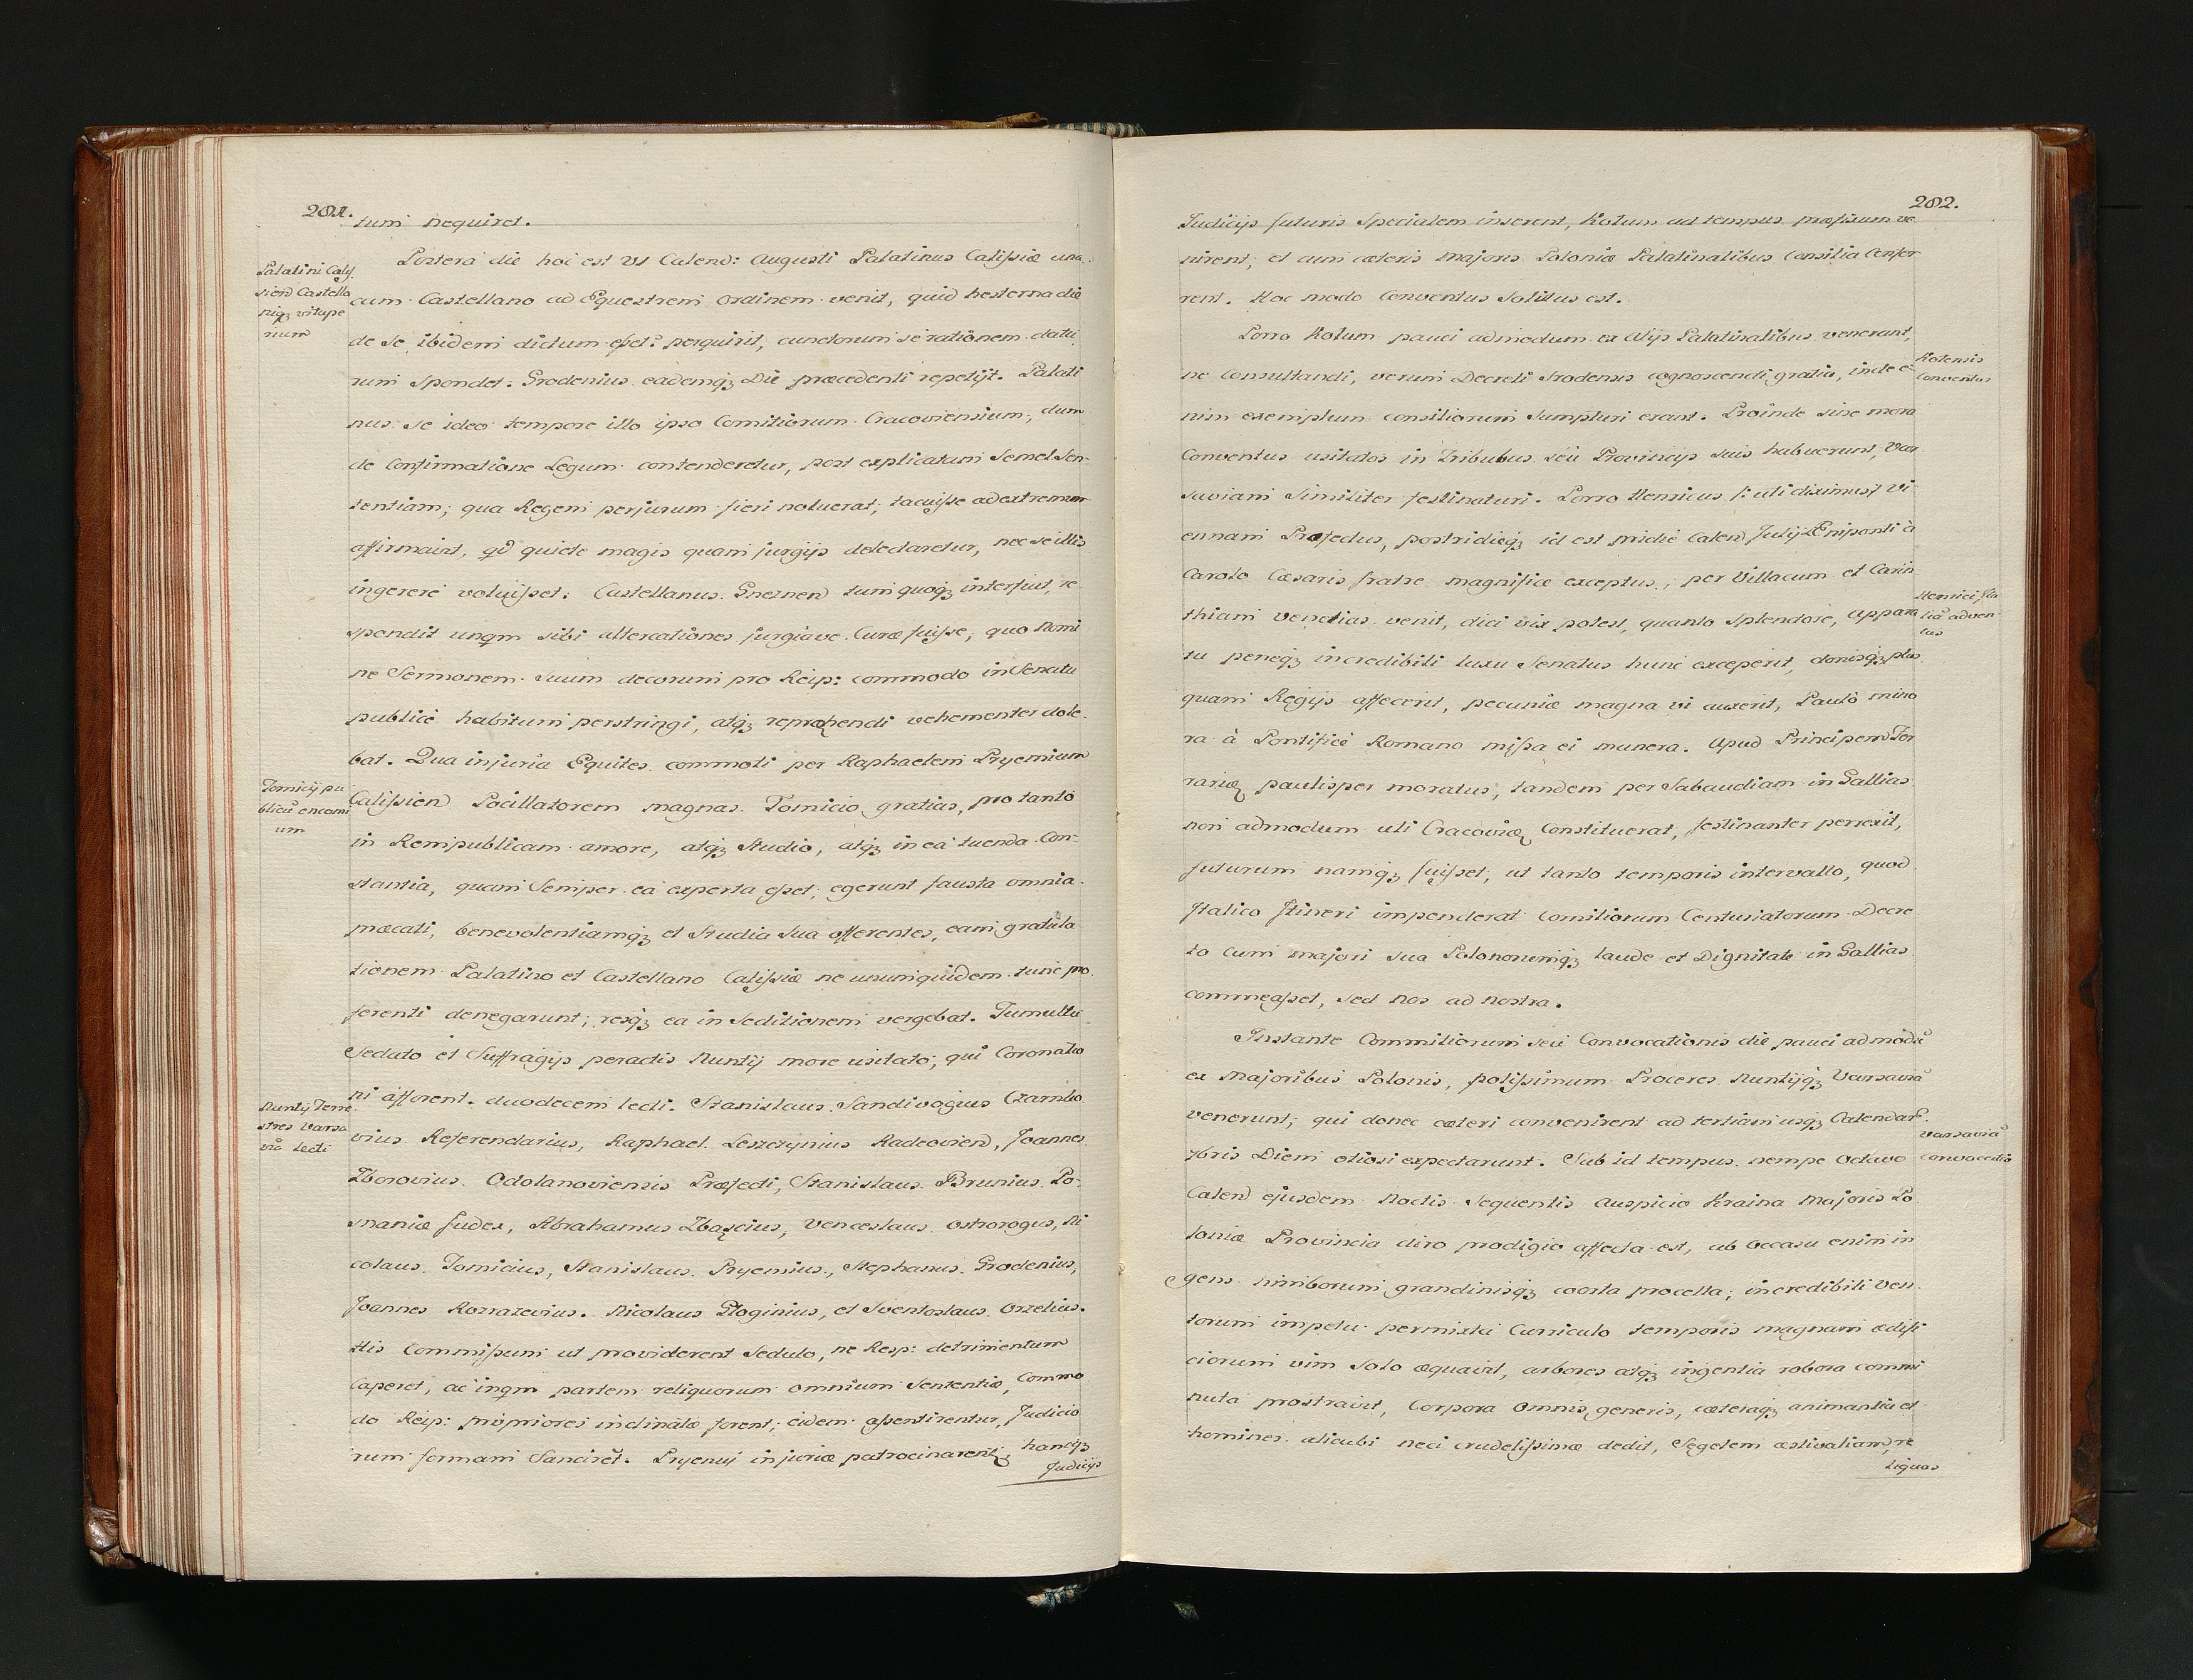 281.
tum nequiret.
Postera die hoc est VI Calend: Augusti Palatinus Calissiæ una
cum Castellano ad Equestrem ordinem venit, quid hesterna die
de se ibidem dictum esset? perquirit, cunctorum se rationem datu
rum spondet: Grodenius eademq; Die præcedenti repetijt. Palati
nus se ideo tempore illo ipso Comitiorum Cracoviensium, dum
de Confirmatione Legum contenderetur, post explicatam semel Sen-
tentiam, qua Regem perjurum fieri noluerat, tacuisse ad extremum
affirmavit, qd quiete magis quam jurgijs delectaretur, nec se illis
ingerere voluisset. Castellanus Gnesnen tum quoq; interfuit, re
spondit unqm sibi altercationes jurgiave Curæ fuisse, quo Nomi
ne Sermonem suum decorum pro Reip: commodo in Senatu
publicè habitum perstringi, atq; reprehendi vehementer dole-
bat. Qua injuria Equites commoti per Raphaelem Pryemium
Calissien Pocillatorem magnas Tomicio gratias, pro tanto
in Rempublicam amore, atq; Studio, atq; in ea tuenda Con-
stantia, quam Semper ea experta esset, egerunt fausta omnia
præcati, benevolentiamq; et Studia sua offerentes, eam gratula
tionem Palatino et Castellano Calissiæ ne unum quidem tunc pro
ferenti denegarunt; resq; ea in Seditionem vergebat. Tumultu
Sedato et Suffragijs peractis Nuntij more usitato, qui Coronatio
ni afforent. duodecem lecti. Stanislaus Sandivogius Czarnko
vius Referendarius, Raphael Leszczynius Radeovien, Joannes
Zborovius Odolanoviensis Præfecti, Stanislaus Brunius Po-
snaniæ Judex, Abrahamus Zbąscius, Venceslaus Ostrorogus, Ni
colaus Tomicius, Stanislaus Pryemius, Stephanus Grodenius,
Joannes Rozrazevius. Nicolaus Gloginius, et Sventoslaus Orzelius.
His Commissum ut providerent Sedulo, ne Resp: detrimentum
caperet, ac in qm partem reliquorum omnium Sententiæ, Commo
do Reip: propriores inclinatæ forent, eidem assentirentur, Judicio
rum formam Sanciret. Pryemij injuriæ patrocinarent, hancq;
Judicijs
Palatini Caly
sien Castella
niq; vitupe
rium
Tomicij pu
blicũ encomi
um
Nuntij Terre
stres Varsa
viã Lecti
282.
Judicijs futuris Specialem insererent, Kolum ad tempus præfixum ve
nirent, et cum cæteris majoris Poloniæ Palatinatibus Consilia Confer
rent. Hoc modo Conventus Solutus est.
Porro Kolum pauci admodum ex Alijs Palatinatibus venerant,
ne Consultandi, verum Decreti Srodensis cognoscendi gratia, inde e-
nim exemplum consiliorum Sumpturi erant. Proinde sine mora
Conventus usitatos in Tribubus seu Provincijs suis habuerunt, Var
saviam Similiter festinaturi. Porro Henricus /: uti diximus:/ Vi-
ennam Profectus, postridieq; id est pridie Calen Julij Æniponti à
Carolo Cæsaris fratre magnificè exceptus, per Villacum et Carin
thiam venetias venit, dici vix potest, quanto Splendore, Appara
tu peneq; incredibili luxu Senatus hunc exceperit, donisq; plus
quam Regijs affecerit, pecuniæ magna vi auxerit, Paulò mino
ra à Pontifice Romano missa ei munera. Apud Principem Fer
rariæ paulisper moratus, tandem per Sabaudiam in Gallias
non admodum uti Cracoviæ Constituerat, festinanter perrexit,
futurum namq; fuisset, ut tanto temporis intervallo, quod
Italico Itineri impenderat Comitiorum Centuriatorum Decre
to cum majori sua Polonorumq; laude et Dignitate in Gallias
commeasset, sed nos ad nostra.
Instante Commitiorum seu Convocationis die pauci admodũ
ex Majoribus Polonis, potissimum Proceres Nuntijq; Varsaviã
venerunt, qui donec cæteri convenirent ad tertiam usq; Calendar.
7bris Diem otiosi expectarunt. Sub id tempus nempe Octavo
Calen ejusdem Noctis Sequentis Auspicio Kraina Majoris Po
loniæ Provincia diro prodigio affecta est, ab Occasu enim in
gens nimborum grandinisq; coorta procella, incredibili Ven
torum impetu permixta Curriculo temporis magnam ædifi
ciorum vim Solo æquavit, arbores atq; ingentia robora commi
nuta prostravit, Corpora omnis generis, cæteraq; animantia et
homines alicubi neci crudelissimæ dedit, Segetem æstivaliam, re
liquas
Kolensis
Conventus
Henrici Ita
liã adven
tus
Varsaviã
convocatio